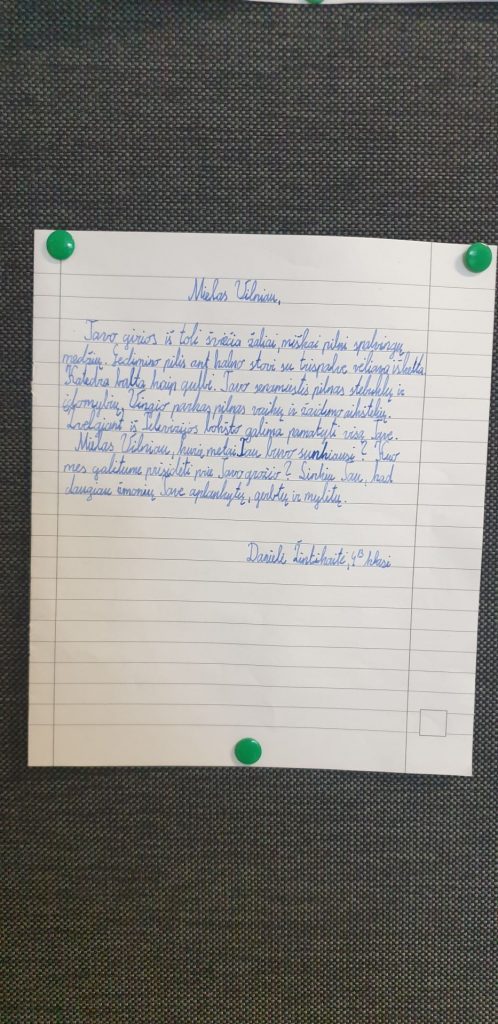 Mielas Vilniau,
Tavo girios iš toli šviečia žaliai, miškai pilni spalvingų
medžių. Gedimino pilis ant kalno stovi su trispalve vėliava iškelta.
Katedra balta kaip gulbė. Tavo senamiestis pilnas stebuklų ir
įdomybių. Vingio parkas pilnas vaikų ir žaidimo aikštelių.
Žvelgiant iš Televizijos bokšto galima pamatyti visą Tave.
Mielas Vilniau, kurie metai Tau buvo sunkiausi? Kuo
mes galitume prisidėti prie Tavo grožio? Linkiu Tau, kad
daugiau žmonių Tave aplankytų, gerbtų ir mylėtų.
Danielė Žintikaitė, 4B klasė